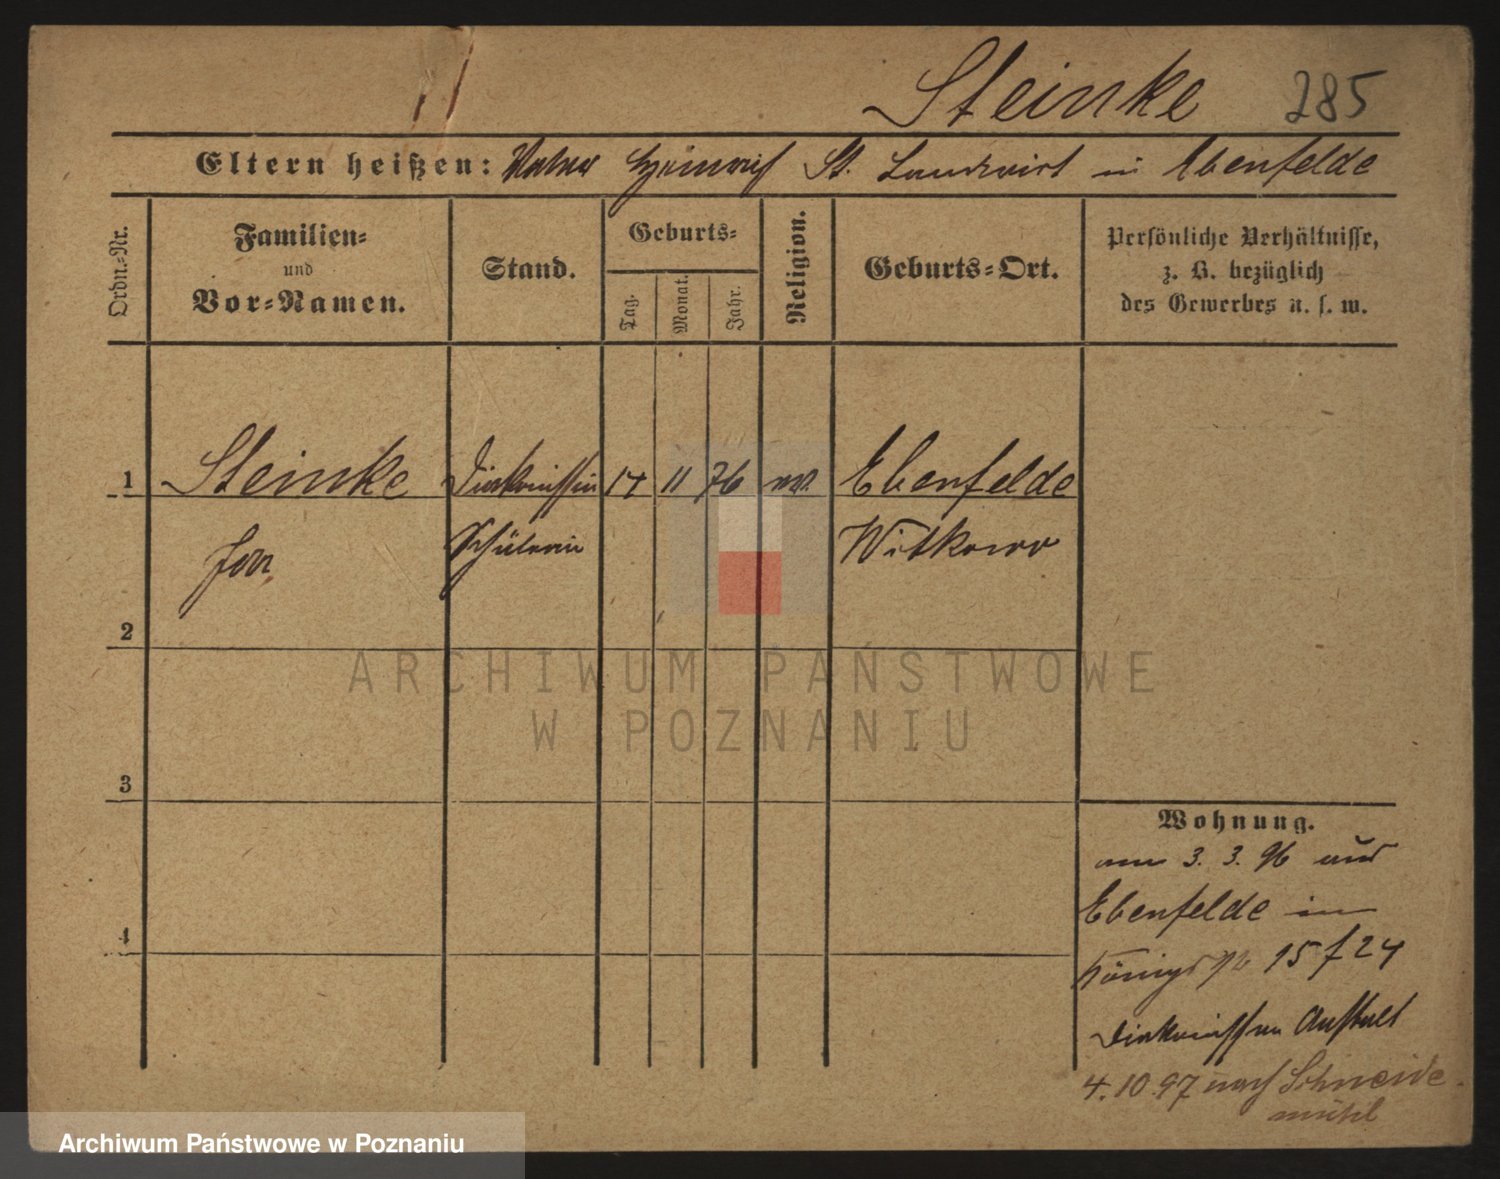 Steinke 285
Eltern heißen: Vater Heinrich St. Landwirt in Ebenfelde
Ordn.-Nr.
Familien-
und
Vor-Namen.
Stand.
Geburts-
Tag.
Monat.
Jahr.
Religion.
Geburts-Ort.
Persönliche Verhältnisse,
z. B. bezüglich
des Gewerbes u. s. w.
1 Steinke Diakonissin 17 11 76 ev. Ebenfelde
Schülerin Witkowo
2
3
4
ARCHIWUM PAŃSTWOWE
W POZNANIU
Wohnung.
am 3. 3. 96 aus
Ebenfelde in
15 f 24
Diakonissen Anstalt
4. 10. 97 nach Schneide-
mühl
Archiwum Państwowe w Poznaniu